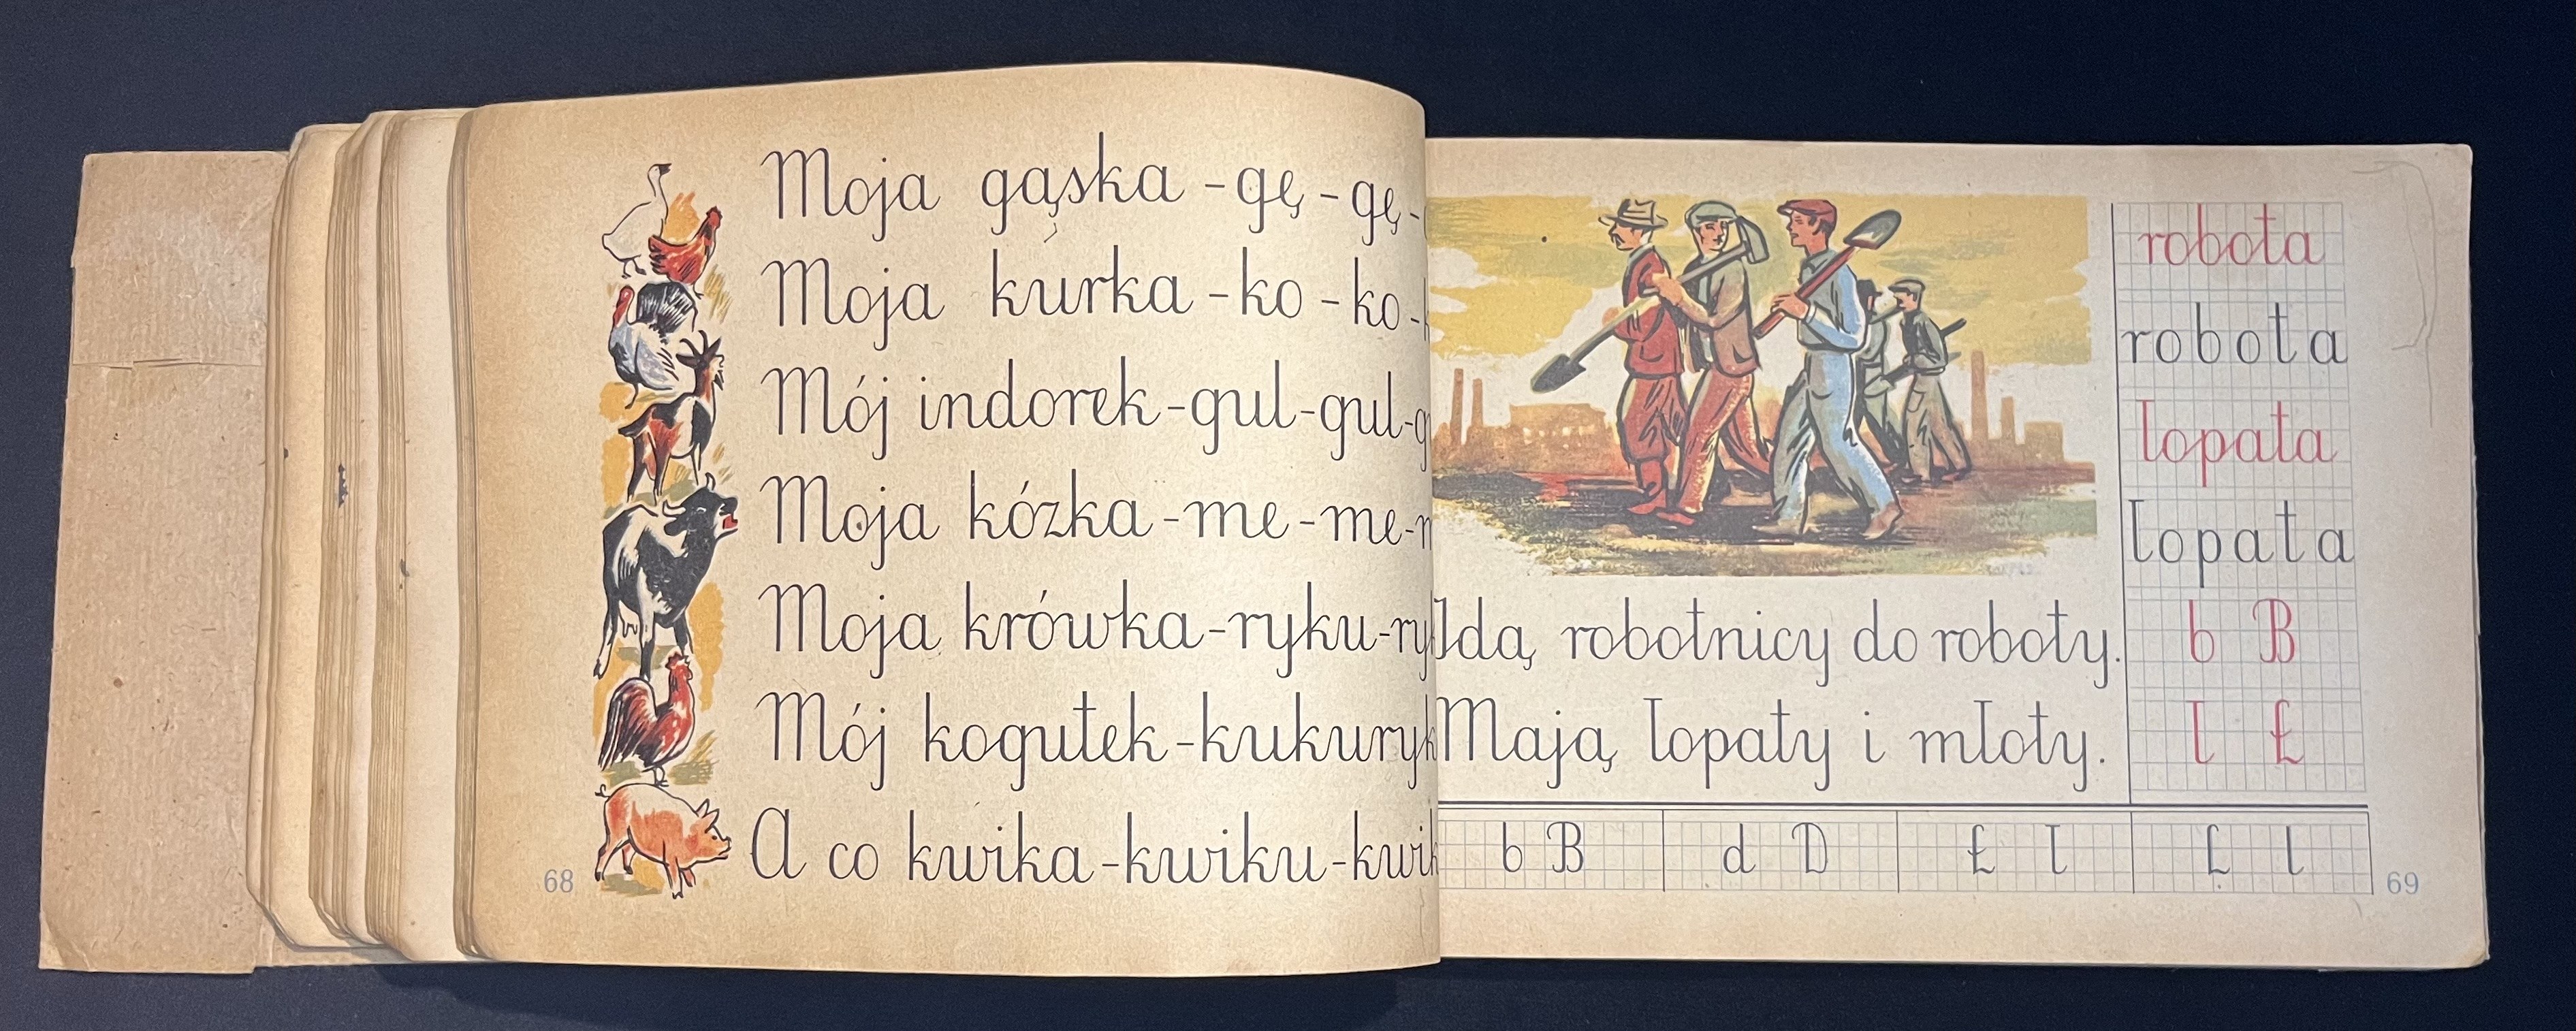 Moja gąska - gę - gę -
Moja kurka - ko - ko -
Mój indorek - gul - gul -
Moja kózka - me - me -
Moja krówka - ryku - ry
Mój kogutek - kukuryk
A co kwika - kwiku - kwik
68
Idą robotnicy do roboty.
Mają łopaty i młoty.
robota
robota
łopata
łopata
b B
ł Ł
b B d D Ł ł L l
69